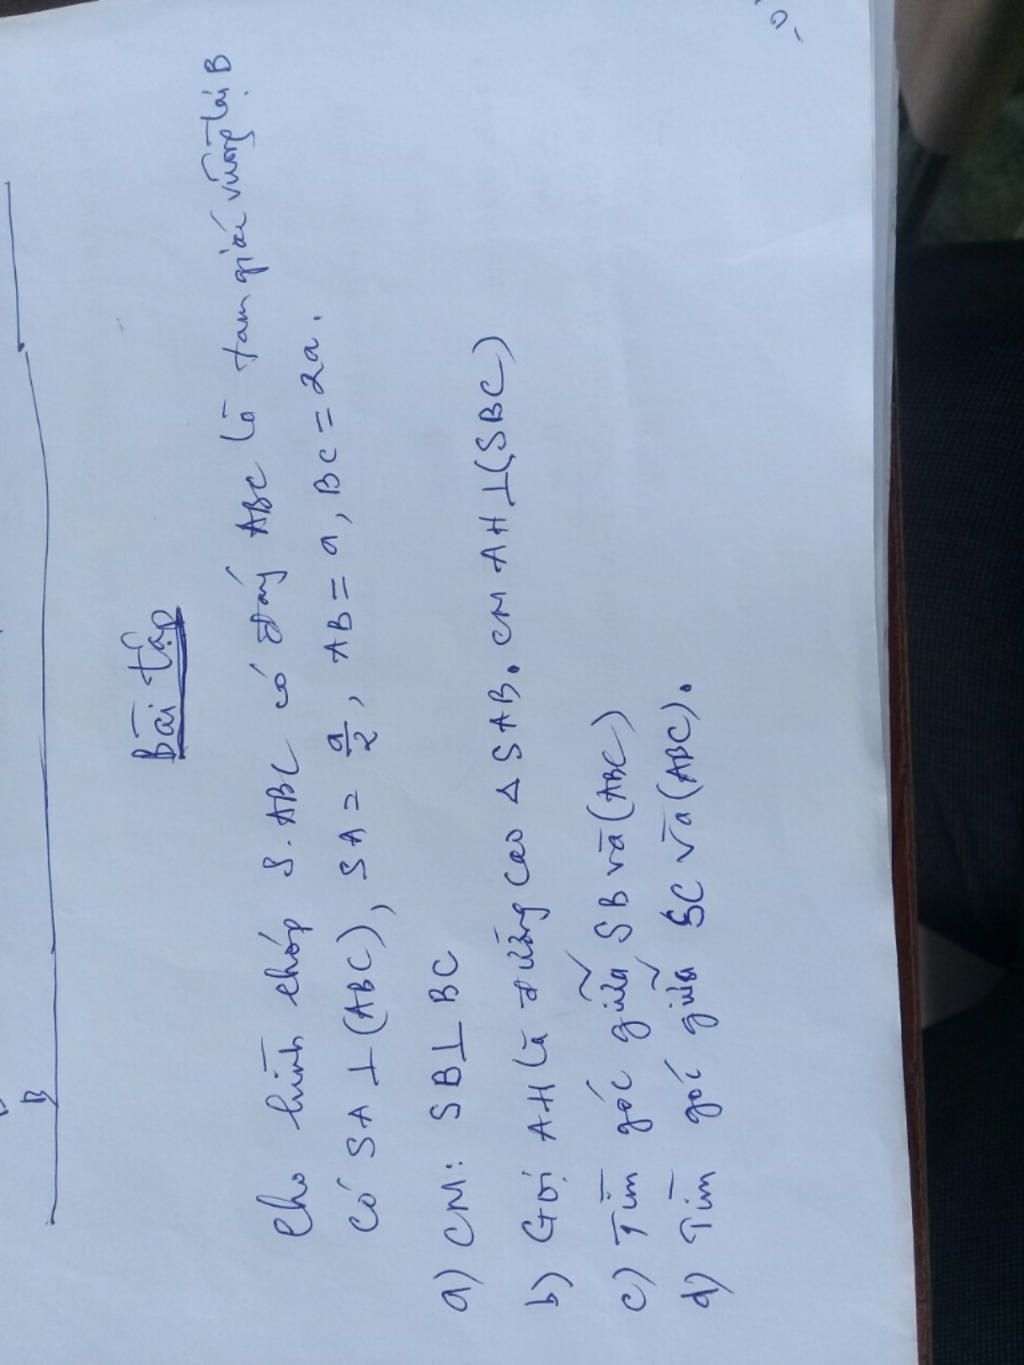 B
Bài tập
Cho hình chóp S.ABC có đáy ABC là tam giác vuông tại B
có SA ⊥ (ABC), SA = a/2, AB = a, BC = 2a.
a) CM: SB ⊥ BC
b) Gọi AH là đường cao Δ SAB. CM AH ⊥ (SBC)
c) Tìm góc giữa SB và (ABC)
d) Tìm góc giữa SC và (ABC).